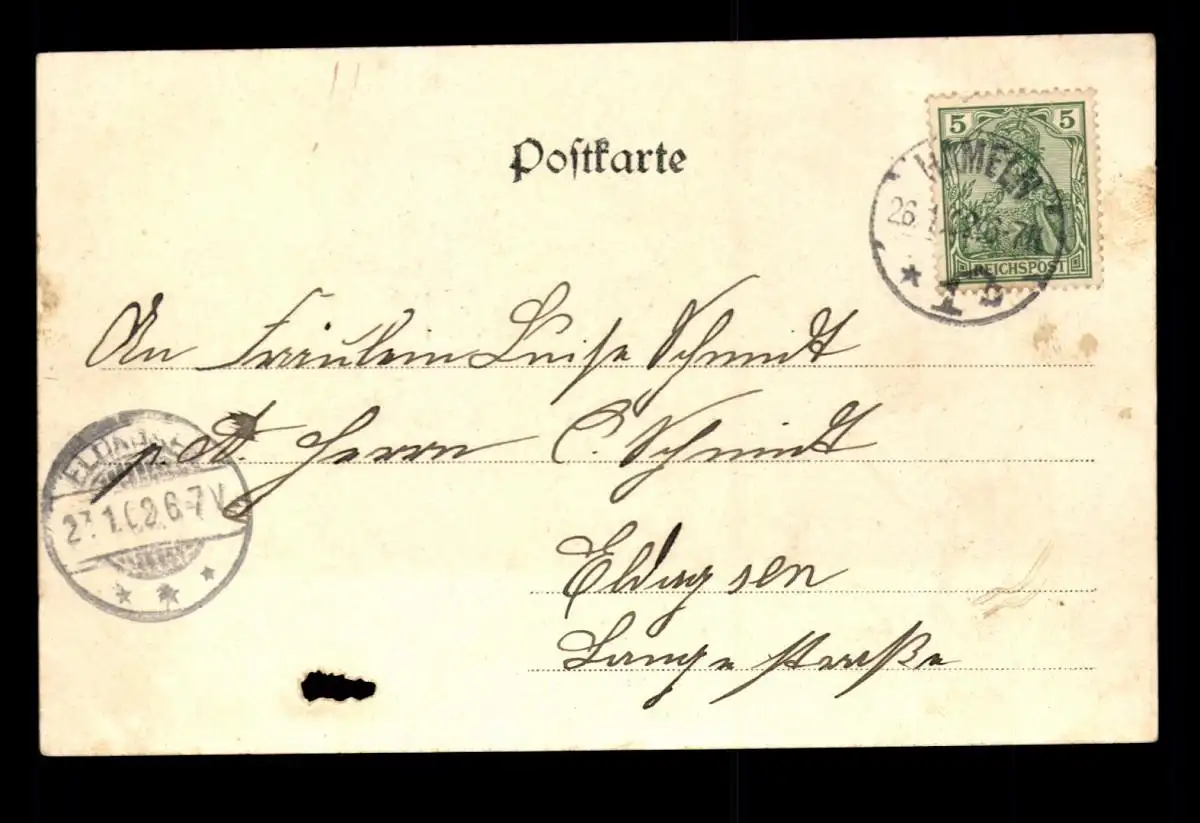 Postkarte
5 5
HAMELN
26
REICHSPOST
1 b
An Fräulein Luise Schmidt
p. Ad. Herrn C. Schmidt
ELDAGSEN
27.1.02.6-7V.
Eldagsen
Lange straße